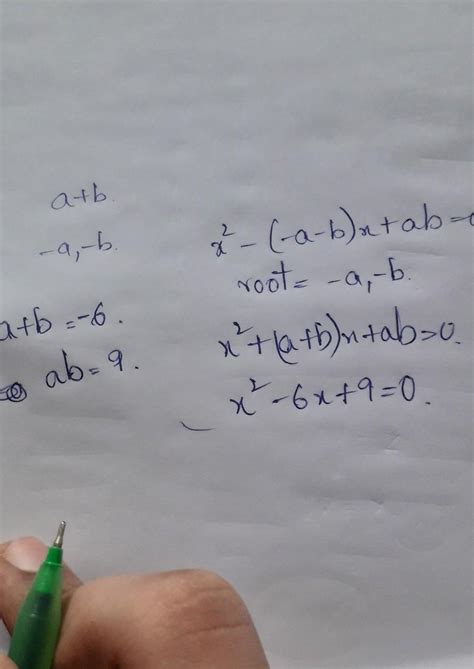 a+b.
-a,-b.
a+b=-6.
ab=9.
x²-(-a-b)x+ab=0
root= -a,-b.
x²+(a+b)x+ab=0.
x²-6x+9=0.